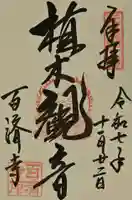 奉拝
令和七年
十一月廿二日
植木観音
百済寺